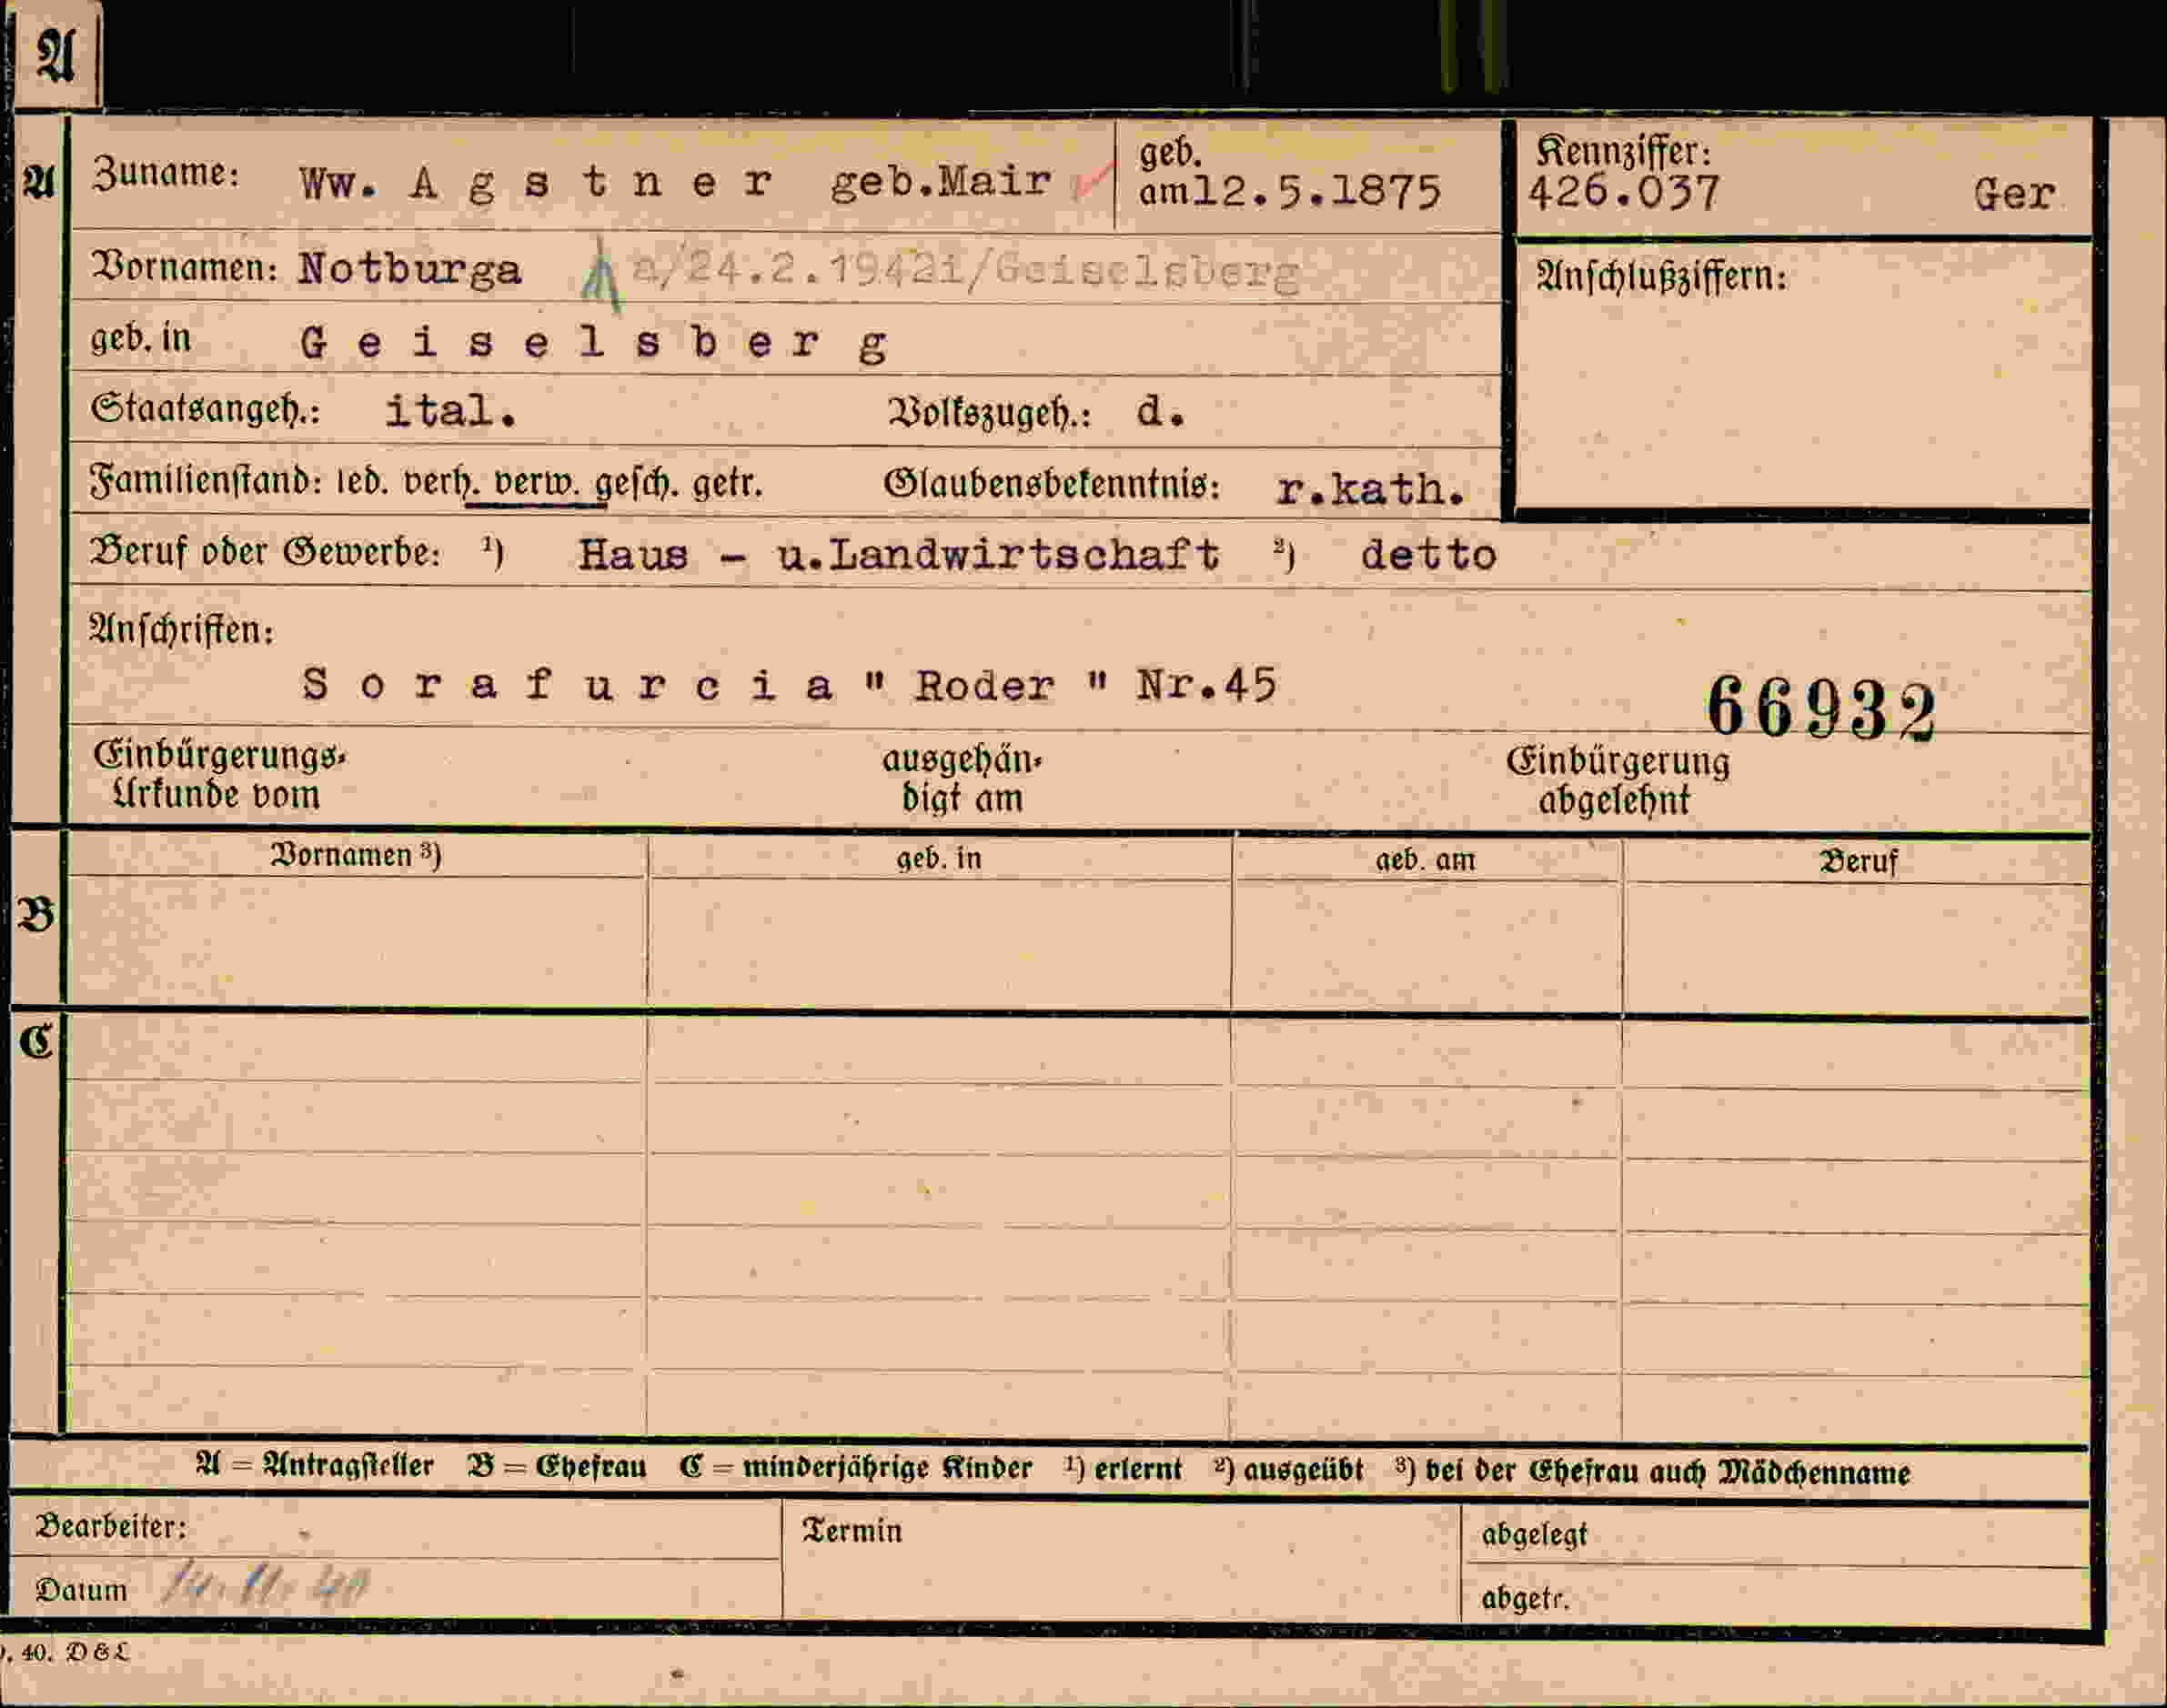 A
A Zuname: Ww. A g s t n e r geb.Mair geb. am 12.5.1875 Kennziffer: 426.037 Ger
Vornamen: Notburga a/24.2.1942i/Geiselsberg Anschlußziffern:
geb. in G e i s e l s b e r g
Staatsangeh.: ital. Volkszugeh.: d.
Familienstand: led. verh. verw. gesch. getr. Glaubensbekenntnis: r.kath.
Beruf oder Gewerbe: ¹) Haus - u.Landwirtschaft ²) detto
Anschriften:
S o r a f u r c i a " Roder " Nr.45
66932
Einbürgerungs- ausgehän- Einbürgerung
Urkunde vom digt am abgelehnt
Vornamen ³) geb. in geb. am Beruf
B
C
A = Antragsteller B = Ehefrau C = minderjährige Kinder ¹) erlernt ²) ausgeübt ³) bei der Ehefrau auch Mädchenname
Bearbeiter: Termin abgelegt
Datum 14. 11. 40 abgetr.
40. D & L